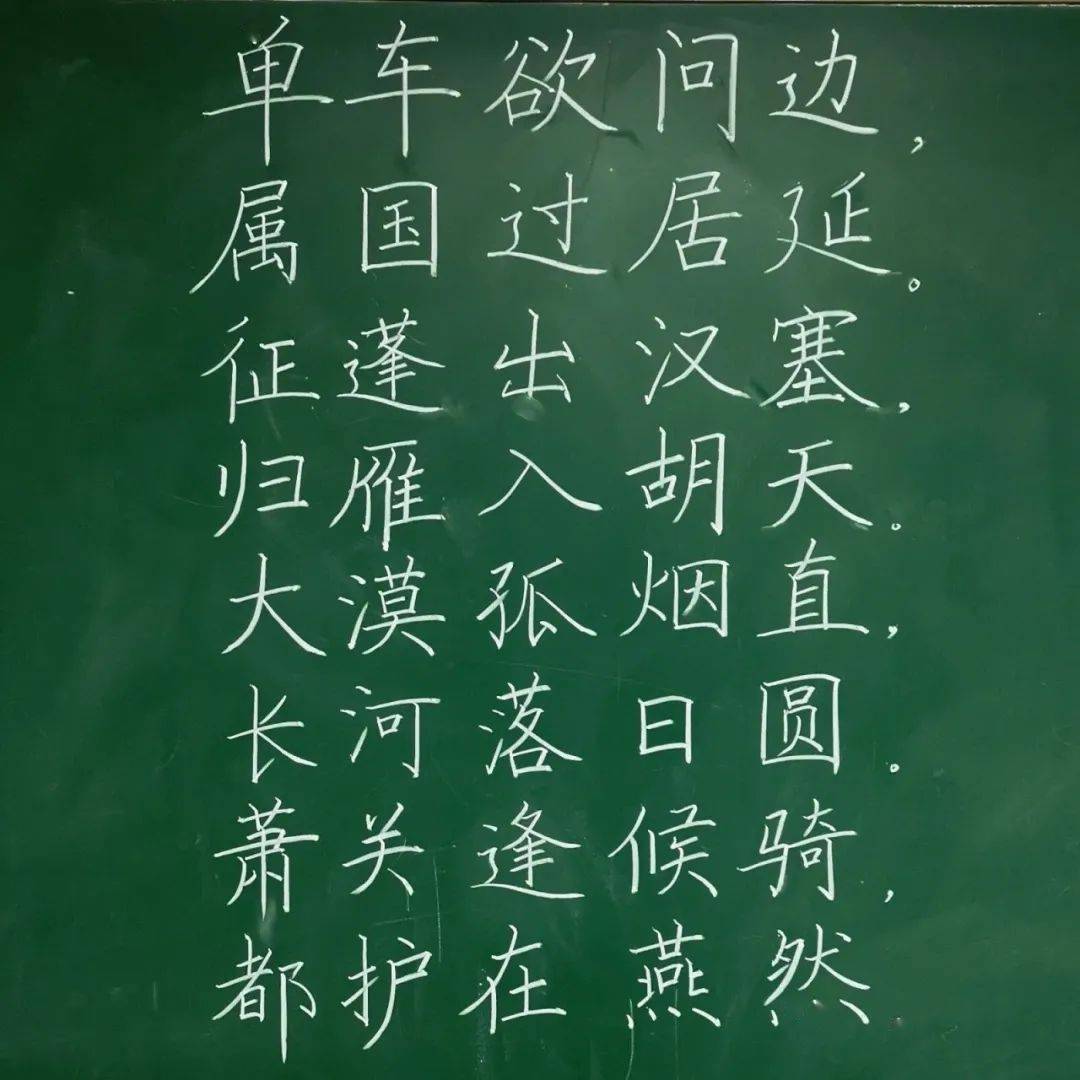 单车欲问边，
属国过居延。
征蓬出汉塞，
归雁入胡天。
大漠孤烟直，
长河落日圆。
萧关逢候骑，
都护在燕然